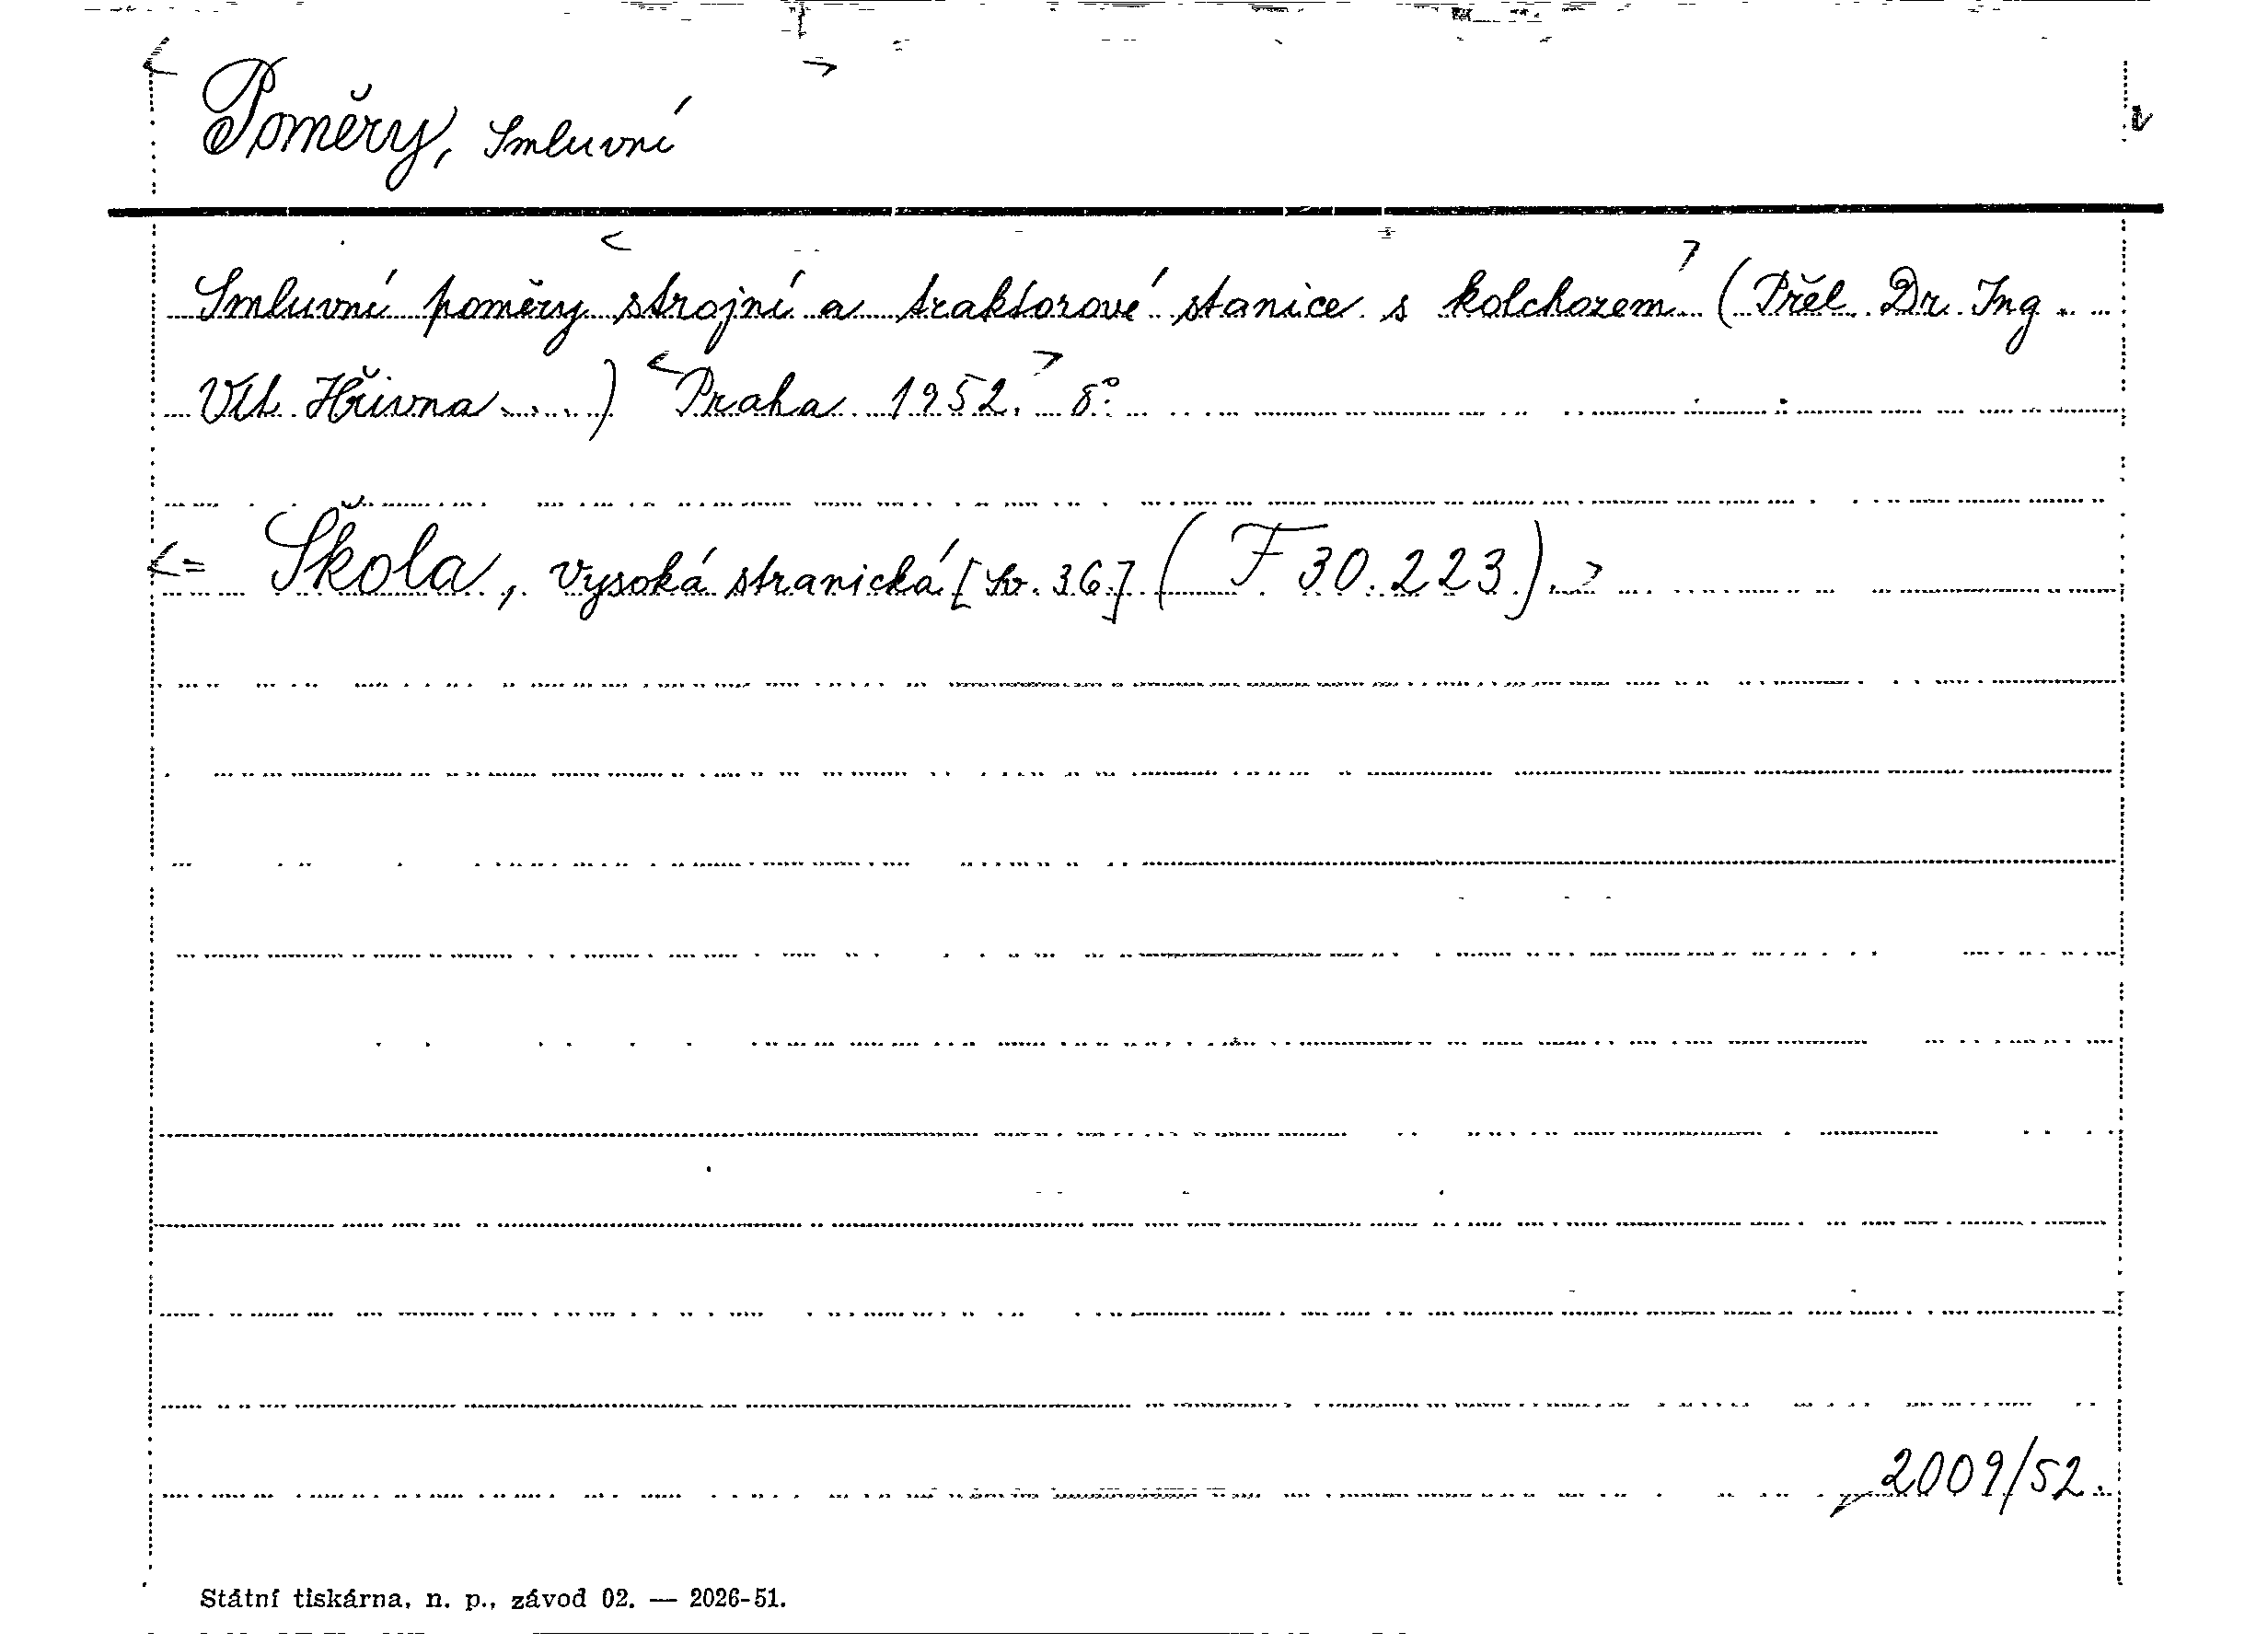 Poměry, Smluvní
Smluvní poměry strojní a traktorové stanice s kolchozem (Přel. Dr. Ing. ..
Vil. Hřivna ....) Praha 1952. 8°.
= Škola, vysoká stranická [Sv. 36.] (F 30.223).
2009/52.
Státní tiskárna, n. p., závod 02. — 2026-51.